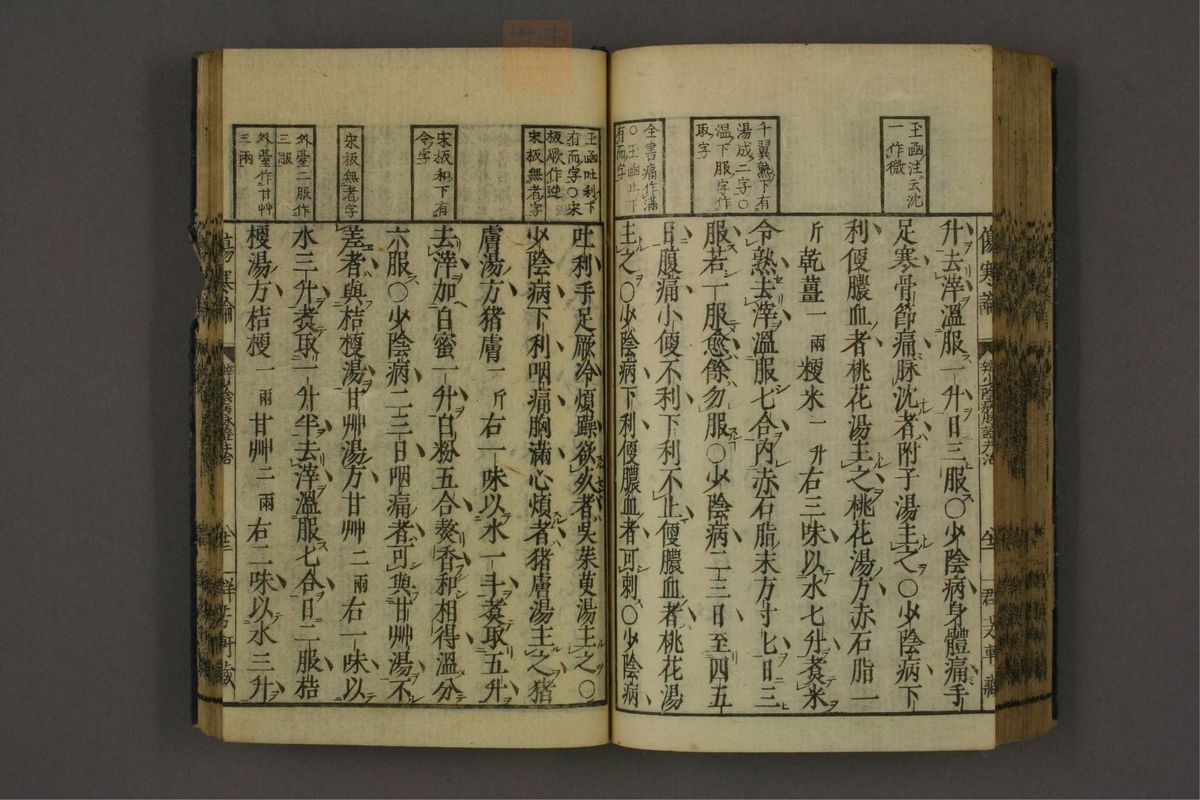 玉函注云沈
一作微
千翼熟下有
湯成二字〇
温下服字作
取字
全書痛作滿
〇玉函止下
有而字
升去滓溫服一升日三服〇少陰病身體痛手
足寒骨節痛脉沈者附子湯主之〇少陰病下
利便膿血者桃花湯主之桃花湯方赤石脂一
斤乾薑一兩粳米一升右三味以水七升煑米
令熟去滓溫服七合內赤石脂末方寸匕日三
服若一服愈餘勿服〇少陰病二三日至四五
日腹痛小便不利下利不止便膿血者桃花湯
主之〇少陰病下利便膿血者可刺〇少陰病
玉函吐利下
有而字〇宋
板厥作逆
宋板無者字
宋板和下有
令字
宋板無者字
外臺二服作
三服
外臺作甘艸
三兩
吐利手足厥冷煩躁欲死者吳茱萸湯主之〇
少陰病下利咽痛胸滿心煩者猪膚湯主之猪
膚湯方猪膚一斤右一味以水一斗煑取五升
去滓加白蜜一升白粉五合熬香和相得溫分
六服〇少陰病二三日咽痛者可與甘艸湯不
差者與桔梗湯甘艸湯方甘艸二兩右一味以
水三升煑取一升半去滓溫服七合日二服桔
梗湯方桔梗一兩甘艸二兩右二味以水三升
傷寒論